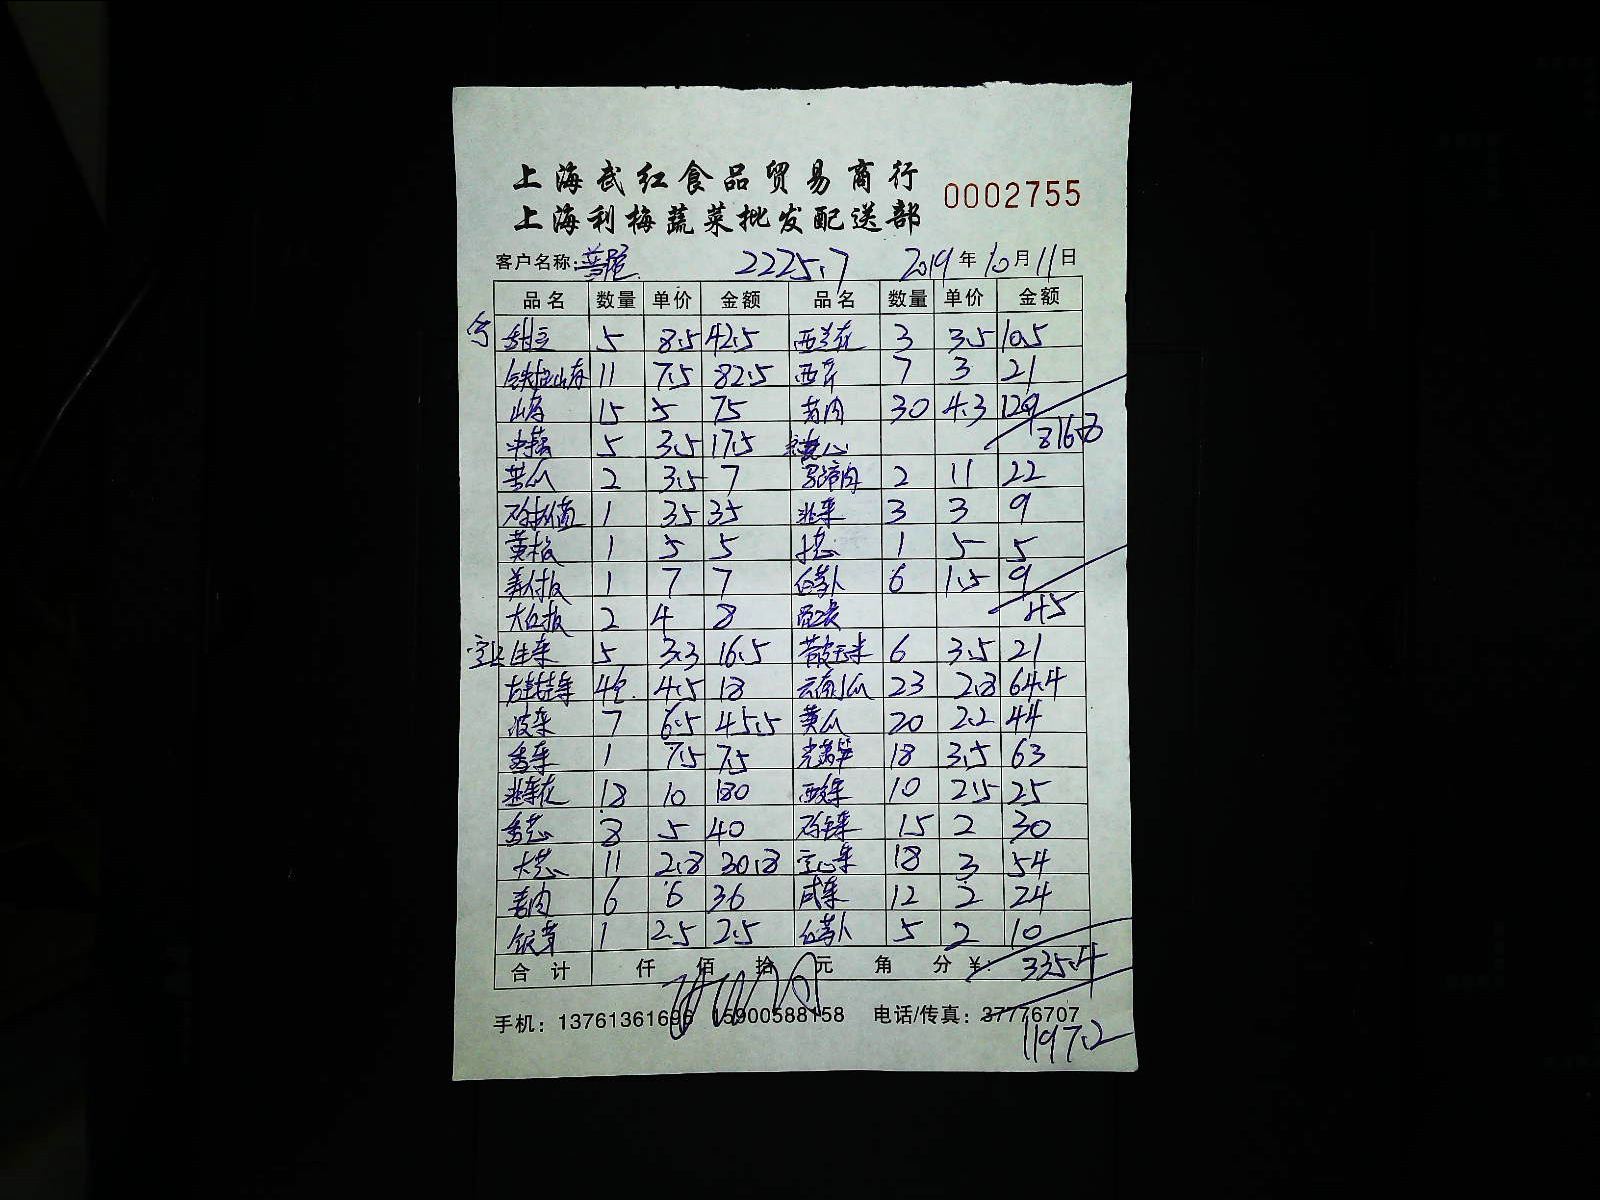 上海武红食品贸易商行
上海利梅蔬菜批发配送部
0002755
客户名称: 2225.7 2019年10月11日
品名 数量 单价 金额 品名 数量 单价 金额
甜豆 5 8.5 42.5 西兰花 3 3.5 10.5
铁棍山药 11 7.5 82.5 西芹 7 3 21
山药 15 5 75 30 4.3 129
5 3.5 17.5 菜心 816.8
苦瓜 2 3.5 7 马蹄肉 2 11 22
1 35 35 韭菜 3 3 9
黄椒 1 5 5 1 5 5
1 7 7 白萝卜 6 1.5 9
大红椒 2 4 8 45
生菜 5 3.3 16.5 6 3.5 21
4包 4.5 18 云南小瓜 23 2.8 64.4
菠菜 7 6.5 45.5 黄瓜 20 2.2 44
香菜 1 7.5 7.5 18 3.5 63
韭菜花 18 10 180 10 2.5 25
香芯 8 5 40 15 2 30
大芯 11 2.8 30.8 空心菜 18 3 54
6 6 36 咸菜 12 2 24
银芽 1 2.5 2.5 白萝卜 5 2 10
合计 仟 佰 拾 元 角 分 ¥: 335.4
手机: 13761361696 15900588158 电话/传真: 37776707
1197.2